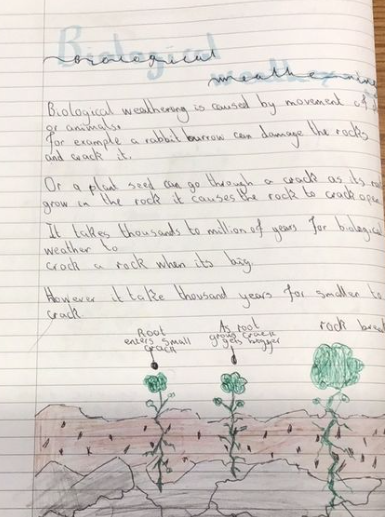 Biological
weathering
Biological weathering is caused by movement of
or animals.
for example a rabbit burrow can damage the rocks
and crack it.
Or a plant seed can go through a crack as its
grow in the rock it causes the rock to crack open
It takes thousands to million of years for biological
weather to
crack a rock when its big.
However it take thousand years for smaller to
crack
Root
enters small
crack
As root
grows crack
gets bigger
rock